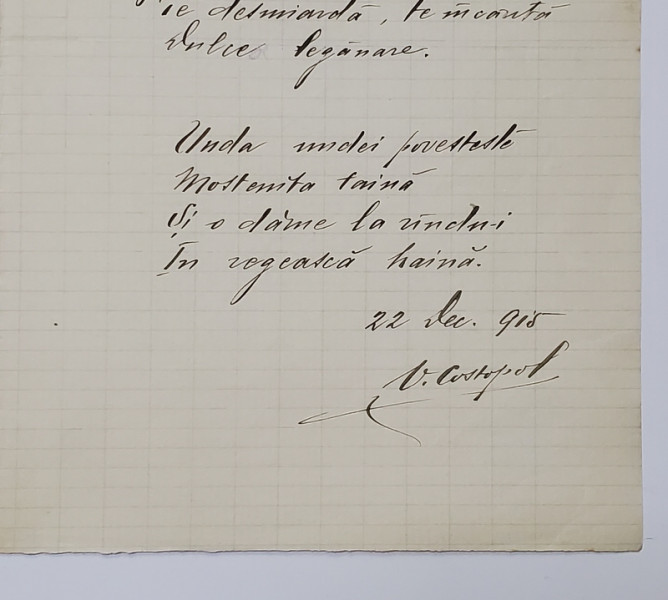 Te desmiardă, te încântă
Dulce legănare.
Unda undei povesteste
Mostenita taină
Și o dăme la rîndu-i
În regească haină.
22 Dec. 915
V. Costopol